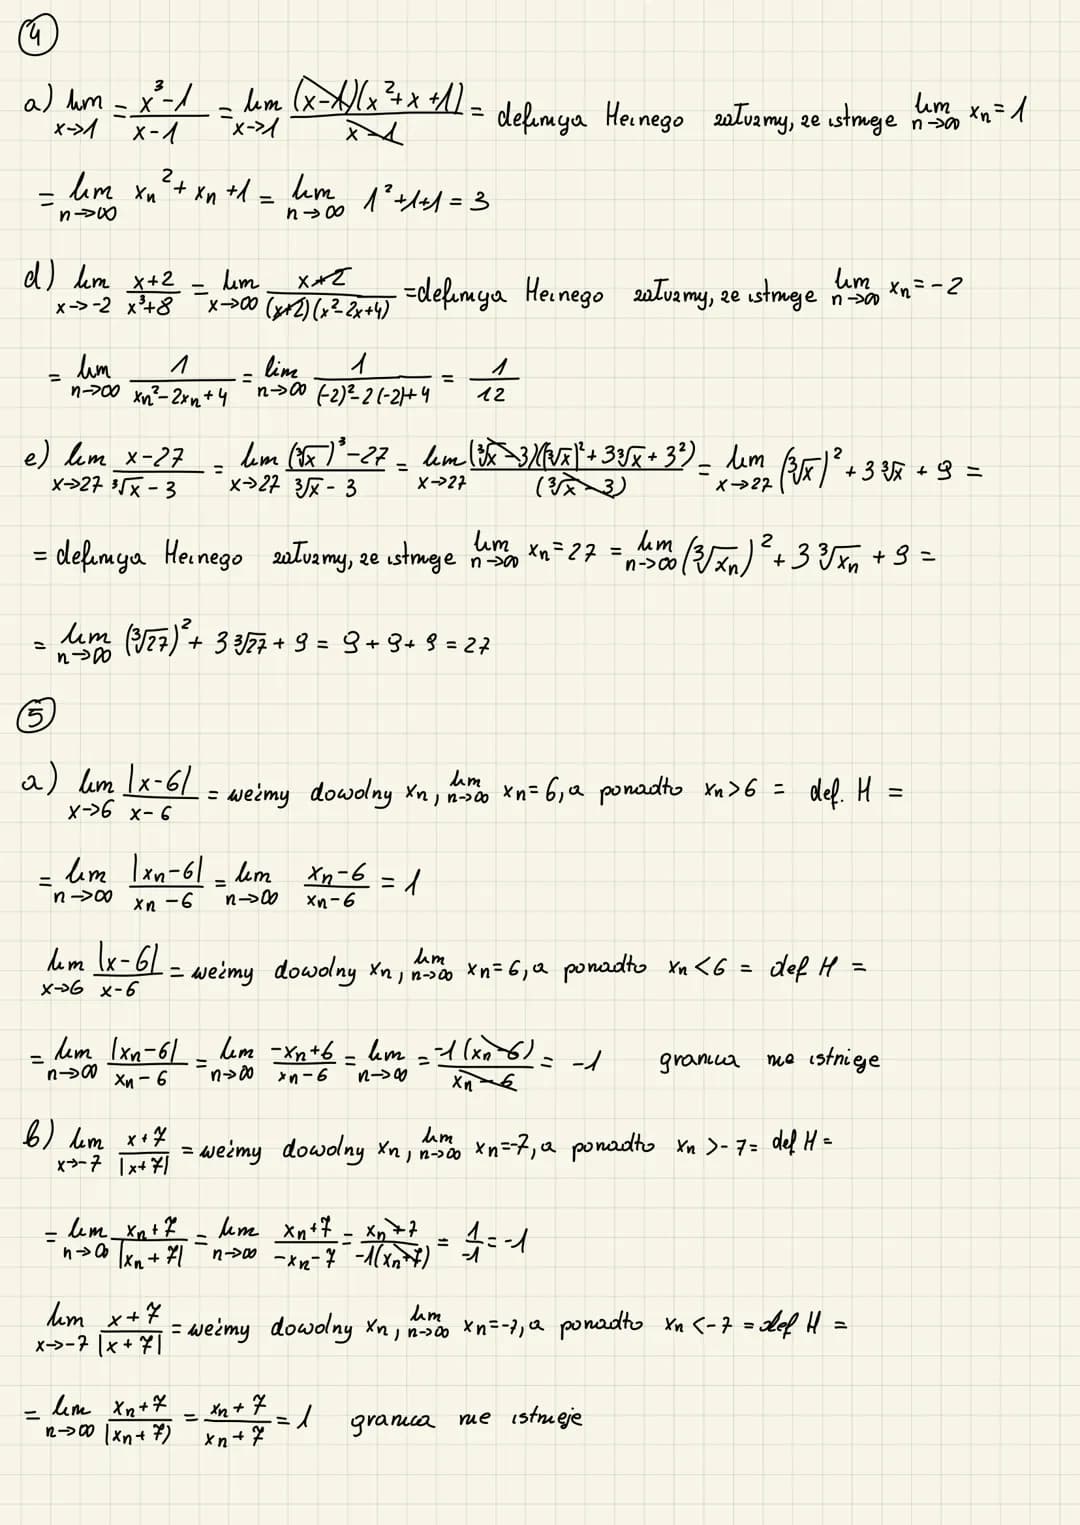 4
a) lim x→1 = x³-1 / x-1 = lim x→1 (x-1)(x²+x+1) / x-1 = definicja Heinego załużmy, że istnieje lim n→∞ xn = 1
= lim n→∞ xn² + xn + 1 = lim n→∞ 1²+1+1 = 3
d) lim x→-2 x+2 / x³+8 = lim x→∞ x+2 / (x+2)(x²-2x+4) = definicja Heinego załużmy, że istnieje lim n→∞ xn = -2
= lim n→∞ 1 / xn²-2xn+4 = lim n→∞ 1 / (-2)²-2(-2)+4 = 1/12
e) lim x→27 x-27 / ∛x - 3 = lim x→27 (∛x)³-27 / ∛x - 3 = lim x→27 (∛x-3)((∛x)²+3∛x+3²) / (∛x-3) = lim x→27 (∛x)² + 3∛x + 9 =
= definicja Heinego załużmy, że istnieje lim n→∞ xn = 27 = lim n→∞ (∛xn)² + 3∛xn + 9 =
= lim n→∞ (∛27)² + 3∛27 + 9 = 9+9+9 = 27
5
a) lim x→6 |x-6| / x-6 = weźmy dowolny xn, lim n→∞ xn=6, a ponadto xn>6 = def. H =
= lim n→∞ |xn-6| / xn-6 = lim n→∞ xn-6 / xn-6 = 1
lim x→6 |x-6| / x-6 = weźmy dowolny xn, lim n→∞ xn=6, a ponadto xn<6 = def H =
= lim n→∞ |xn-6| / xn-6 = lim n→∞ -xn+6 / xn-6 = lim n→∞ = -1(xn-6) / xn-6 = -1 granica nie istnieje
b) lim x→-7 x+7 / |x+7| = weźmy dowolny xn, lim n→∞ xn=-7, a ponadto xn >-7 = def H =
= lim n→∞ xn+7 / |xn+7| = lim n→∞ xn+7 / -xn-7 = xn+7 / -1(xn+7) = 1/-1 = -1
lim x→-7 x+7 / |x+7| = weźmy dowolny xn, lim n→∞ xn=-7, a ponadto xn <-7 = def H =
= lim n→∞ xn+7 / |xn+7) = xn+7 / xn+7 = 1 granica nie istnieje